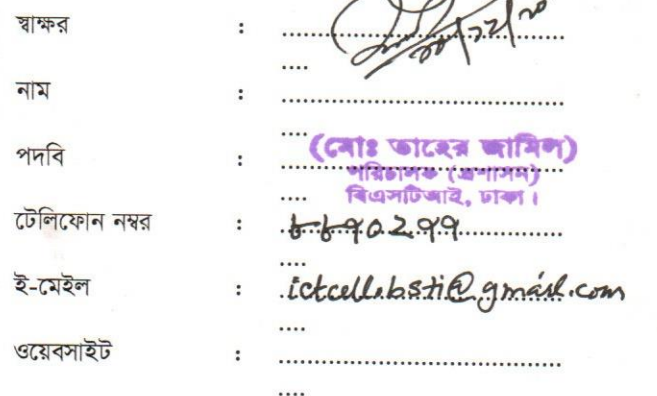 স্বাক্ষর :
নাম :
পদবি :
(মোঃ তাহের জামিল)
পরিচালক (প্রশাসন)
বিএসটিআই, ঢাকা।
টেলিফোন নম্বর : ৮৮৭০২৭৭
ই-মেইল : ictcell.bsti@gmail.com
ওয়েবসাইট :